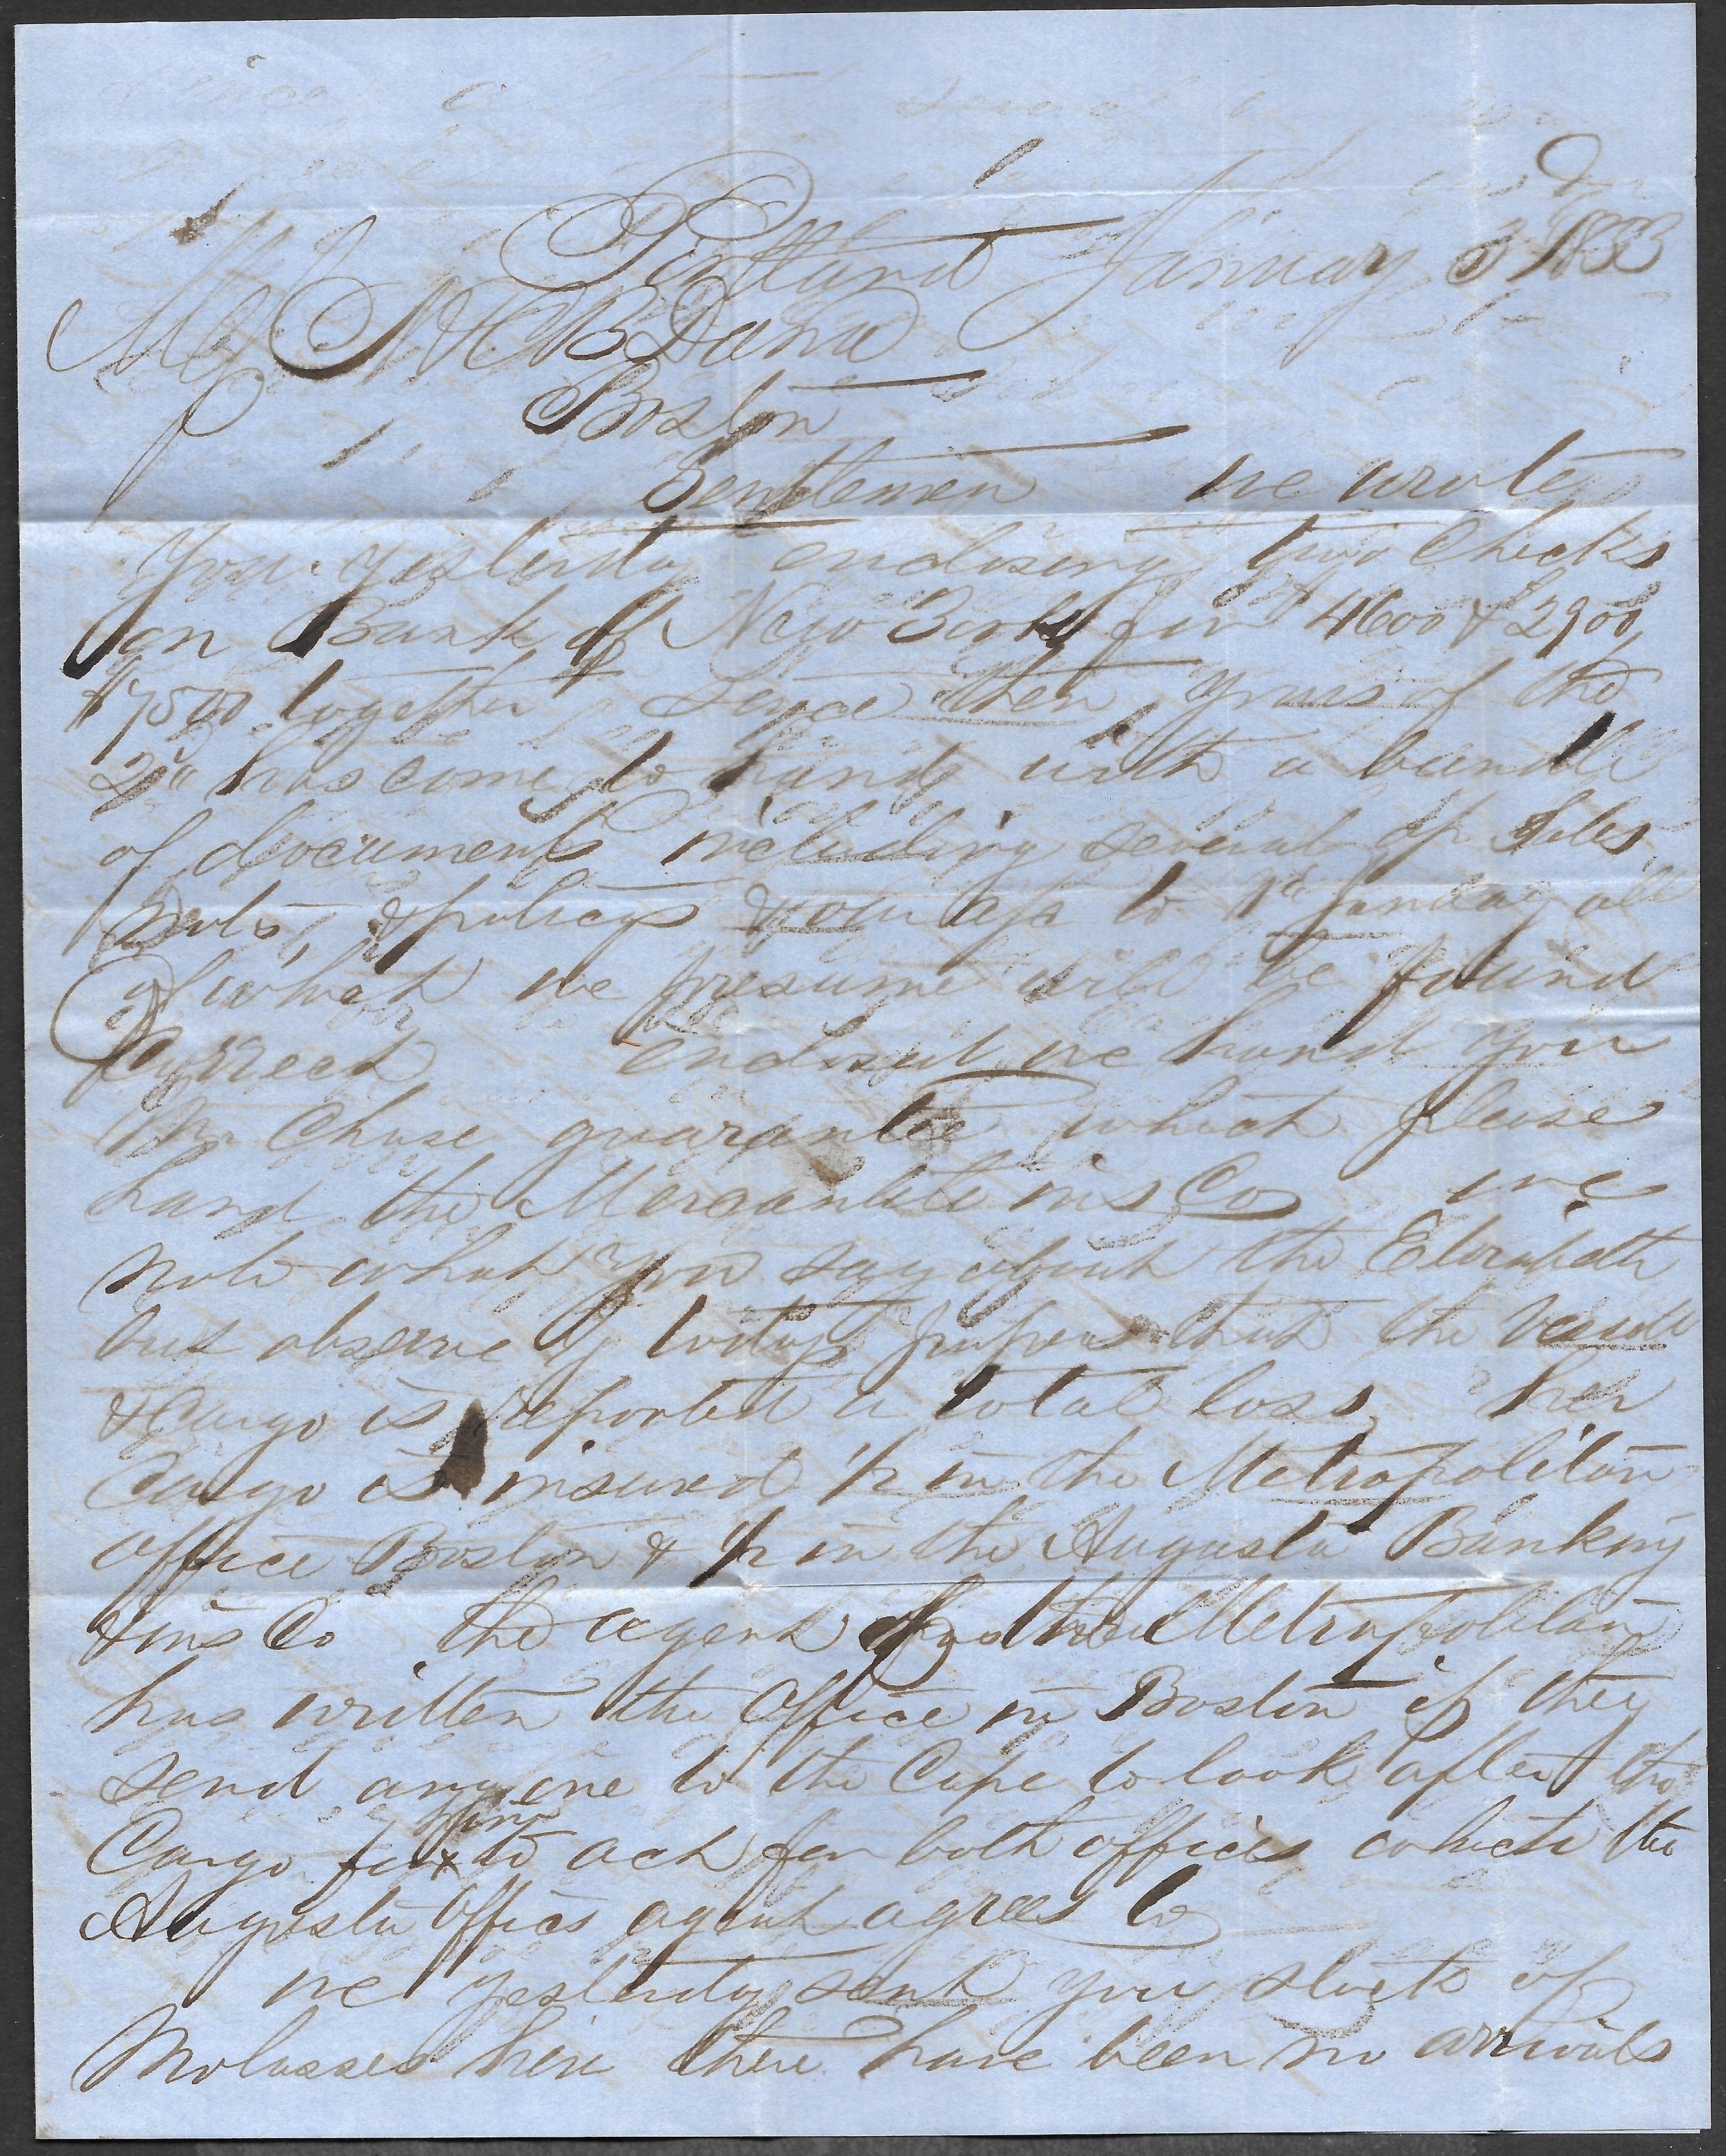 Portland January 3 1853
Mess N & B Dana
Boston
Gentlemen we wrote
you yesterday enclosing two checks
on Bank of New York for $4600 & $2900
$7500 together Since then yours of the
2d has come to hand with a bundle
of documents including several of Sales
Notes, & policys & our a/c to 1st January all
of which we presume will be found
Correct enclosed we hand you
Mr Chase guarantee which please
hand the Mercantile ins Co we
note what you say about the Elizabeth
but observe by todays papers that the vessell
& Cargo is reported a total loss, her
Cargo is insured 1/2 in the Metropolitan
office Boston & 1/2 in the Augusta Banking
& ins Co the agent of the Metropolitan
has written the Office in Boston if they
send any one to the Cape to look after the
Cargo for him to act for both offices which the
Augusta Office agent agrees to
we yesterday sent you stock of
Molasses here there have been no arrivals